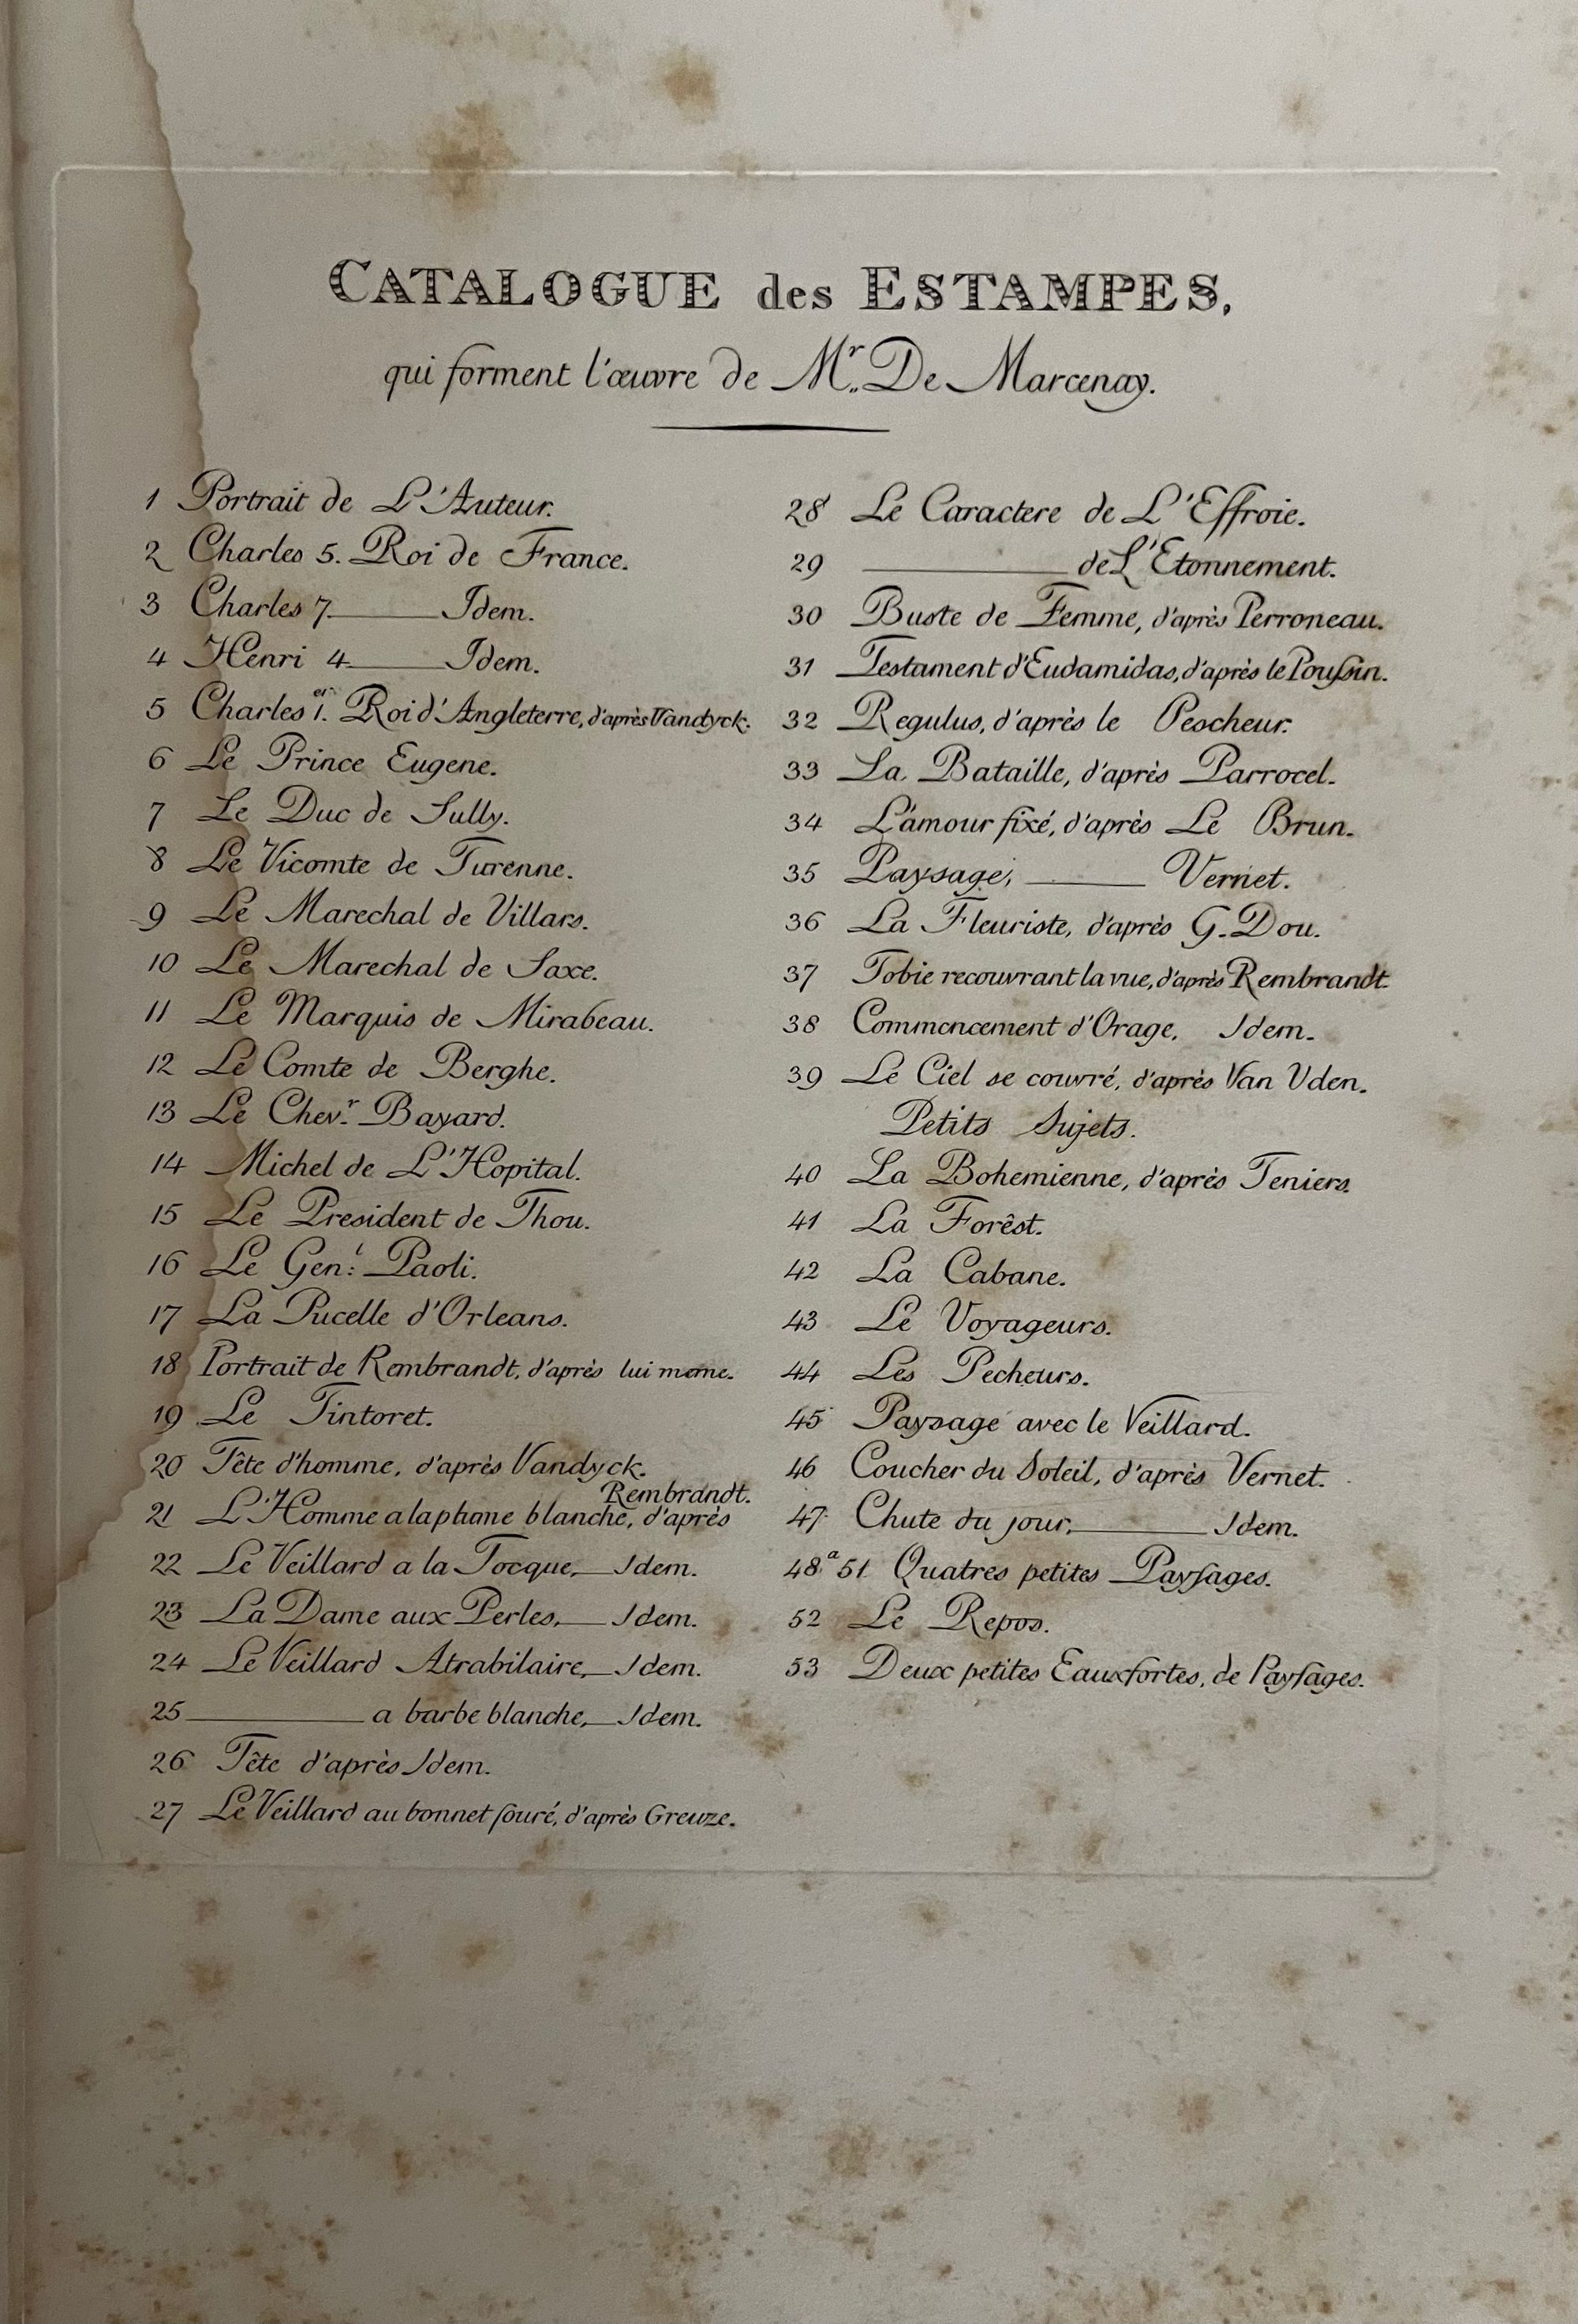 CATALOGUE des ESTAMPES,
qui forment l'œuvre de Mr. De Marcenay.
1 Portrait de L'Auteur.
2 Charles 5. Roi de France.
3 Charles 7. Idem.
4 Henri 4 Idem.
5 Charles 1.er Roi d'Angleterre, d'après Vandyck.
6 Le Prince Eugene.
7 Le Duc de Sully.
8 Le Vicomte de Turenne.
9 Le Marechal de Villars.
10 Le Marechal de Saxe.
11 Le Marquis de Mirabeau.
12 Le Comte de Berghe.
13 Le Chev.r Bayard.
14 Michel de L'Hopital.
15 Le President de Thou.
16 Le Gen:l Paoli.
17 La Pucelle d'Orleans.
18 Portrait de Rembrandt, d'après lui meme.
19 Le Tintoret.
20 Tête d'homme, d'après Vandyck.
21 L'Homme a la plume blanche, d'après Rembrandt.
22 Le Veillard a la Tocque, Idem.
23 La Dame aux Perles, Idem.
24 Le Veillard Atrabilaire, Idem.
25 a barbe blanche, Idem.
26 Tête d'après Idem.
27 Le Veillard au bonnet fouré, d'après Greuze.
28 Le Caractere de L'Effroie.
29 de L'Etonnement.
30 Buste de Femme, d'après Perroneau.
31 Testament d'Eudamidas, d'après le Pouſsin.
32 Regulus, d'après le Pescheur.
33 La Bataille, d'après Parrocel.
34 L'amour fixé, d'après Le Brun.
35 Paysage, Vernet.
36 La Fleuriste, d'après G. Dou.
37 Tobie recouvrant la vue, d'après Rembrandt.
38 Commencement d'Orage, Idem.
39 Le Ciel se couvré, d'après Van Uden.
Petits Sujets.
40 La Bohemienne, d'après Teniers.
41 La Forêst.
42 La Cabane.
43 Le Voyageurs.
44 Les Pecheurs.
45 Paysage avec le Veillard.
46 Coucher du Soleil, d'après Vernet.
47 Chute du jour, Idem.
48 a 51 Quatres petites Payſages.
52 Le Repos.
53 Deux petites Eauxfortes, de Payſages.